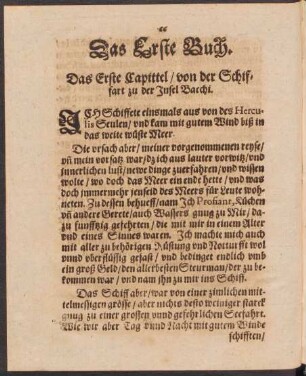 Das Erste Buch.
Das Erste Capittel / von der Schif-
fart zu der Insel Bacchi.
ICH Schiffete einsmals aus von des Hercu-
lis Seulen / vnd kam mit gutem Wind biß in
das weite wüste Meer.
Die vrsach aber / meiner vorgenommenen reyse /
vñ mein vorsatz war / dz ich aus lauter vorwitz / vnd
innerlichen lust / newe dinge zuerfahren / vnd wissen
wolte / wo doch das Meer ein ende hette / vnd was
doch immermehr jenseid des Meers für Leute woh-
neten. Zu dessen behueff / nam Ich Profiant, Küchen
vñ andere Gerete / auch Wassers gnug zu Mir / da-
zu funfftzig gefehrten / die mit mir in einem Alter
vnd eines Sinnes waren. Ich machte mich auch
mit aller zu behörigen Rüstung vnd Notturfft wol
vnnd vberflüssig gefast / vnd bedinget endlich vmb
ein groß Geld / den allerbesten Steurman / der zu be-
kommen war / vnd nam jhn zu mir ins Schiff.
Das Schiff aber / war von einer zimlichen mit-
telmessigen grösse / aber nichts desto weiniger starck
gnug zu einer grossen vnnd gefehrlichen Seefahrt.
Wie wir aber Tag vnnd Nacht mit gutem Winde
schifften /